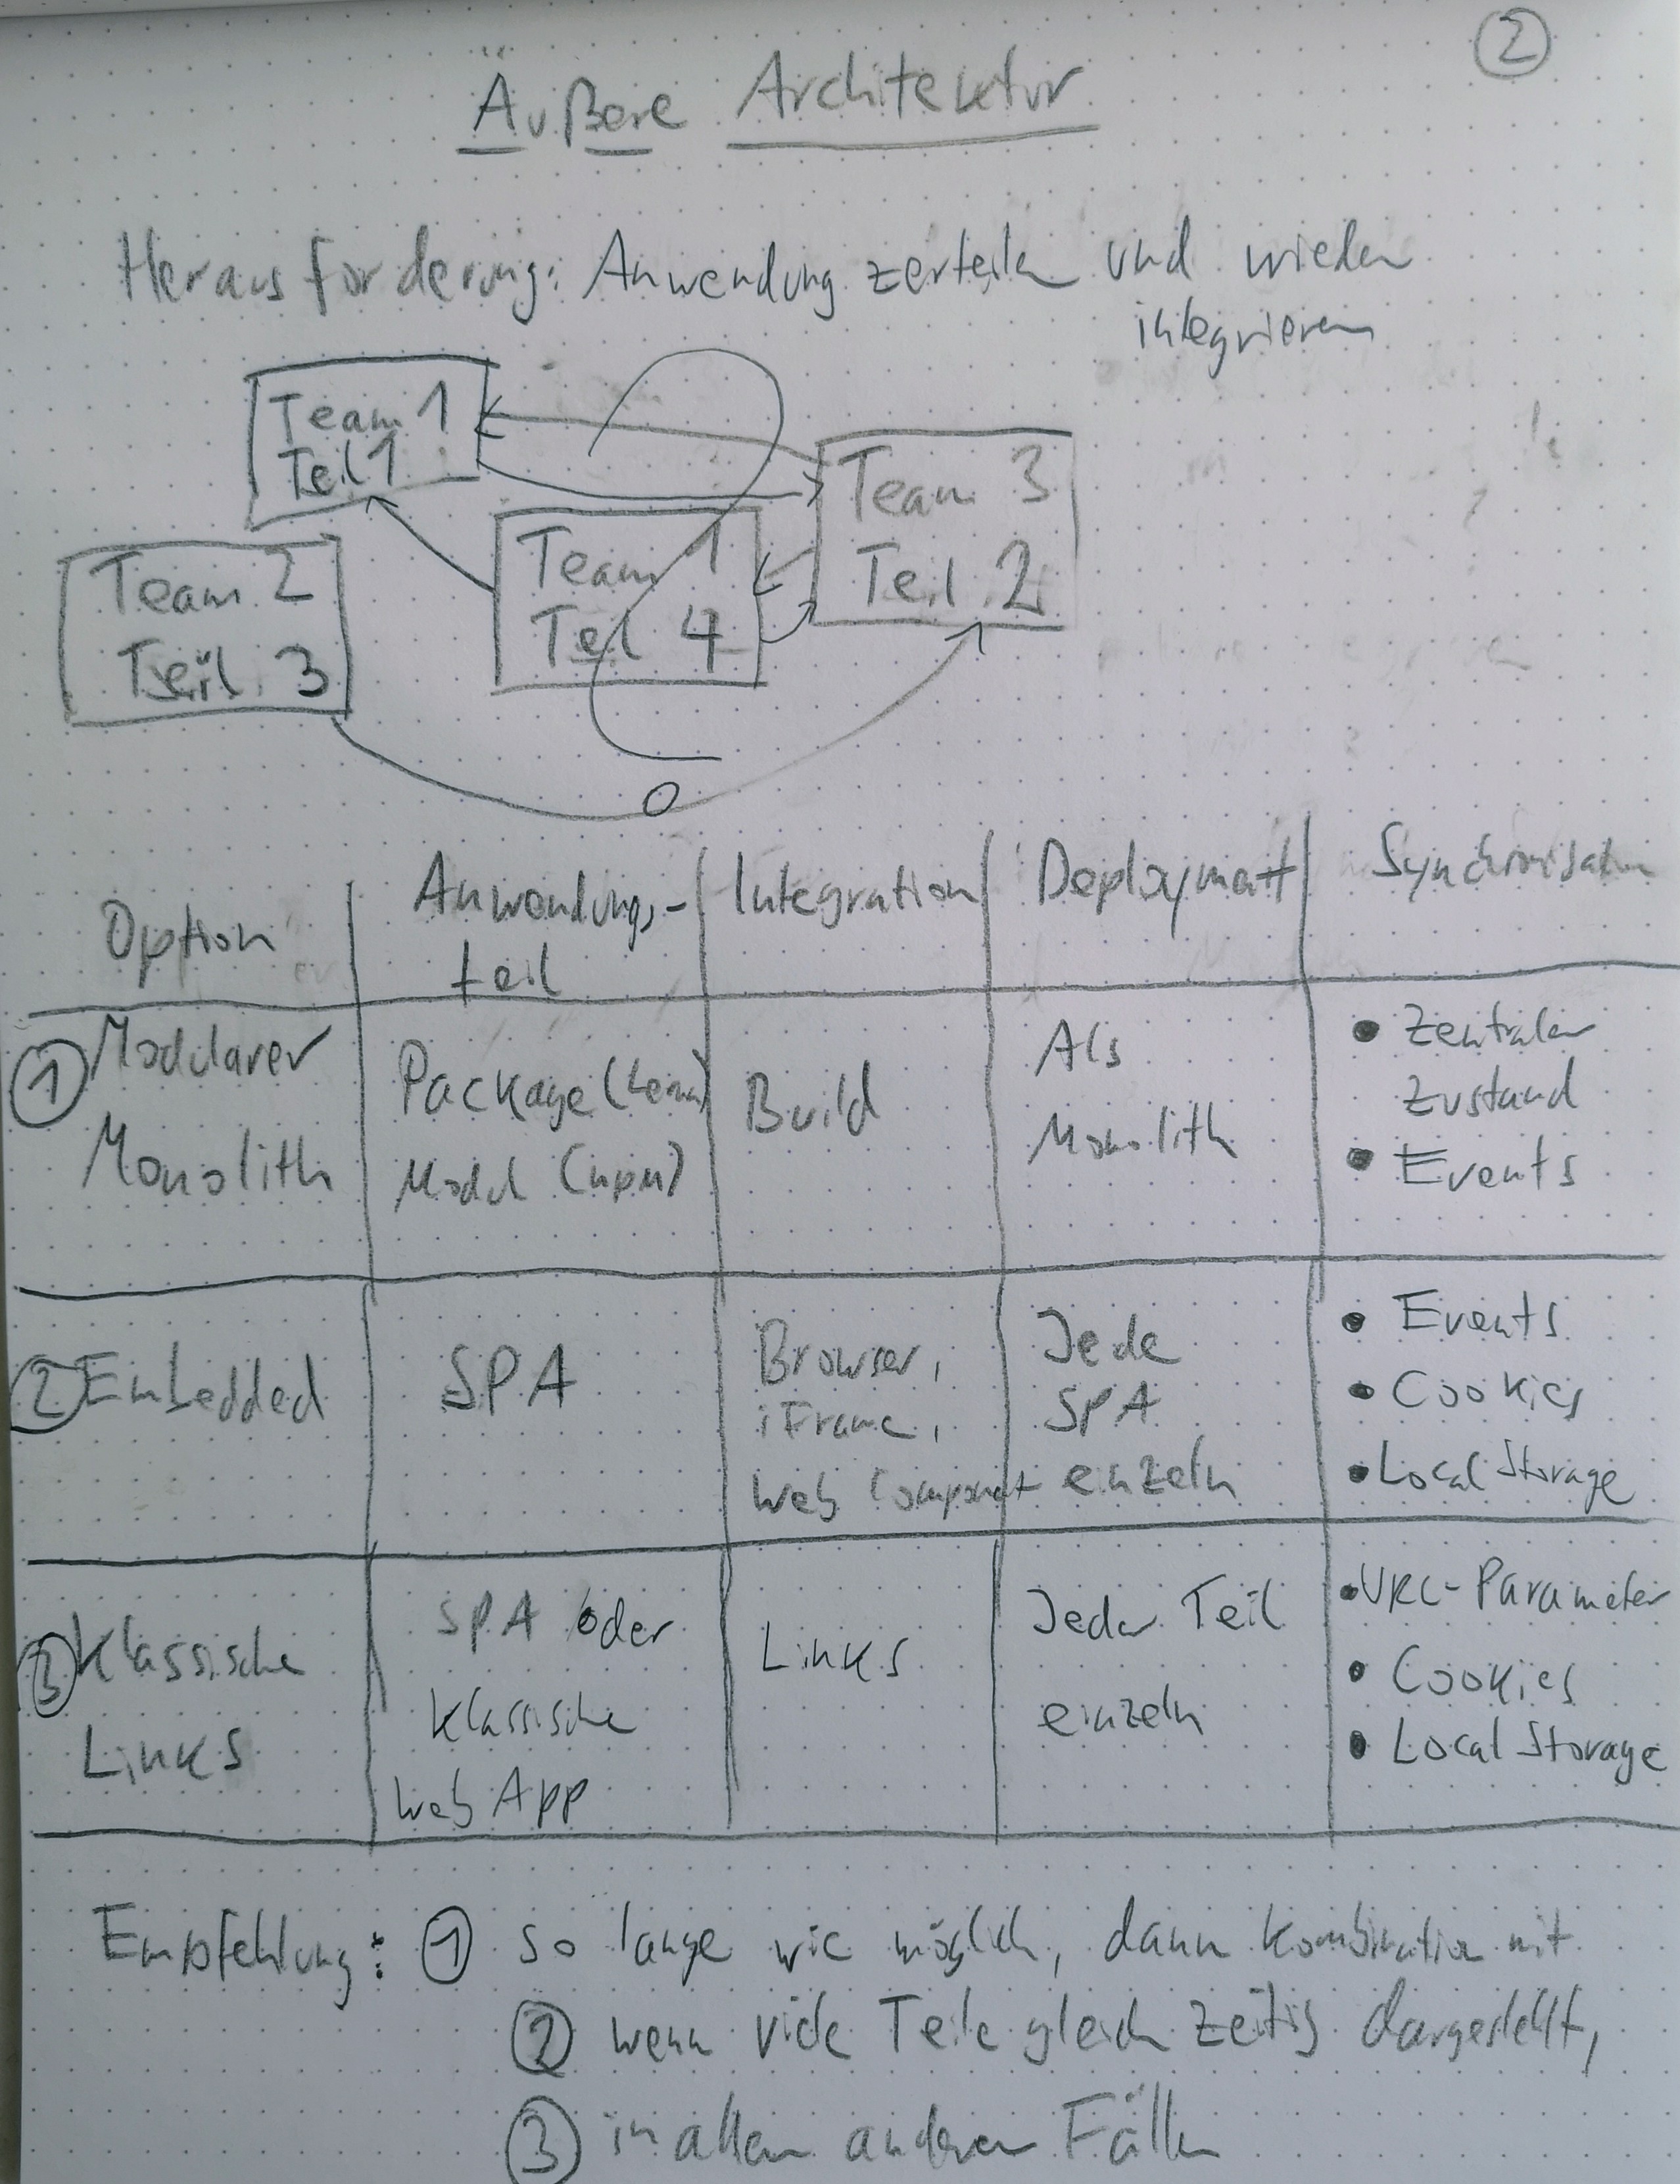 2
Äußere Architektur
Herausforderung: Anwendung zerteilen und wieder
integrieren
Team 1
Teil 1
Team 3
Teil 2
Team 1
Teil 4
Team 2
Teil 3
Option
Anwendungs-
teil
Integration
Deployment
Synchronisation
1 Modularer
Monolith
Package (Lerna)
Modul (npm)
Build
Als
Monolith
• Zentraler
Zustand
• Events
2 Embedded
SPA
Browser,
iFrame,
Web Component
Jede
SPA
einzeln
• Events
• Cookies
• Local Storage
3 Klassische
Links
SPA oder
klassische
Web App
Links
Jeder Teil
einzeln
• URL-Parameter
• Cookies
• Local Storage
Empfehlung: 1 so lange wie möglich, dann Kombination mit
2 wenn viele Teile gleichzeitig dargestellt,
3 in allen anderen Fällen